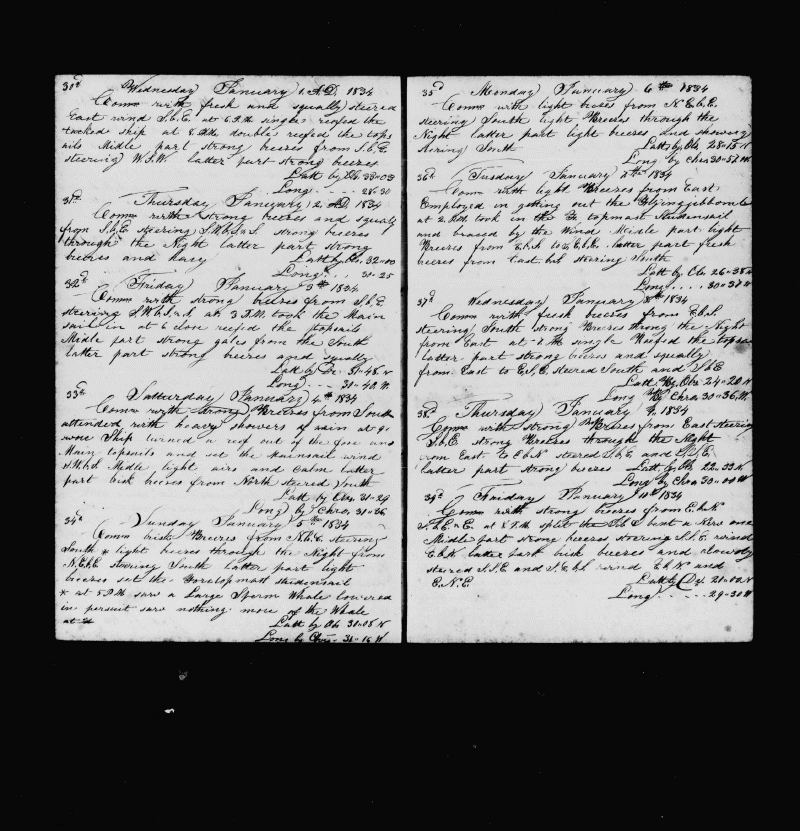 30d Wednesday January 1. A.D. 1834
Comm with fresh and squally steered
East wind S.b.E. at 6 P.M. single reefed the
tacked ship at 8 P.M. double reefed the tops
ails Midle part strong breezes from S.b.E.
steering W.S.W. latter part strong breezes
Latt by Ob 33=03
Long ..... 28=30
31st Thursday January 2. A.D. 1834
Comm with strong beezes and squaly
from S.b.E. steering S.W.b.S strong beezes
through the Night latter part strong
beezes and hazy Latt by Ob. 32=00
Long ... 30-25
32d Friday January 3th 1834
Comm with strong beezes from S.b.E.
steering S.W.b.S. at 3 P.M. took the Main
sail in at 6 close reefed the topsails
Midle part strong gales from the South
latter part strong beezes and squally
Latt by Dr. 31=48 N
Long ... 30-40 W
33d Satterday January 4th 1834
Comm with strong Breezes from South
attended with heavy showers of rain at 9.
wore Ship turned a reef out of the fore and
Main topsails and set the Mainsail wind
S.W.b.S. Midle light airs and Calm latter
part bisk beezes from North steered South
Latt by Obs. 31=29
Long by Chro. 31=36
34th Sunday January 5th 1834
Comm bisk Breezes from N.b.E. steering
South * light beezes through the Night from
N.E.b.E steering South latter part light
beezes set the Foretopmast studensail
* at 5 P.M. saw a Large Sperm Whale lowered
in persuit saw nothing more of the Whale
Latt by Ob 30=08 N
Long by Chro 31=16 W
35d Monday January 6th 1834
Comm with light beezes from N.E.b.E.
steering South light Breezes through the
Night latter part light beezes and showery
stering South Latt by Ob. 28=15 N
Long by Chro 30=57 W
36d Tusday January 7th 1834
Comm with light Breezes from East
Employed in getting out the Flyingjibboom
at 2 P.M. took in the topmast studensail
and braced by the Wind Midle part light
Breezes from E.b.S. to E.b.E. latter part fresh
beezes from East steering South
Latt by Ob. 26=38 N
Long .... 30=37 W
37d Wednesday January 8th 1834
Comm with fresh beezes from E.b.S.
steering South strong Breezes throug the Night
from East at 7 P.M. single Reefed the topsa
latter part strong beezes and squally
from East to E.S.E steered South and S.b.E
Latt by Obs 24=20 N
Long by Chro 30=36 W
38d Thursday January 9. 1834
Comm with strong Breezes from East steering
S.b.E. strong Breezes through the Night
from East to E.b.N steered S.b.E and S.S.E.
latter part strong beezes Latt. by Ob 22=33 N
Long by Chro 30=00 W
39d Friday January 10th 1834
Comm with strong beezes from E.b.N
S.b.E. at 8 P.M. split the Jib bent a New one
Midle part strong beezes steering S.S.E. wind
E.b.N. latter part bisk beezes and clowdy
steered S.S.E. and S.E.b.S. wind E.b.N and
E.N.E. Latt by Ob. 21=00 N
Long ..... 29-30 W